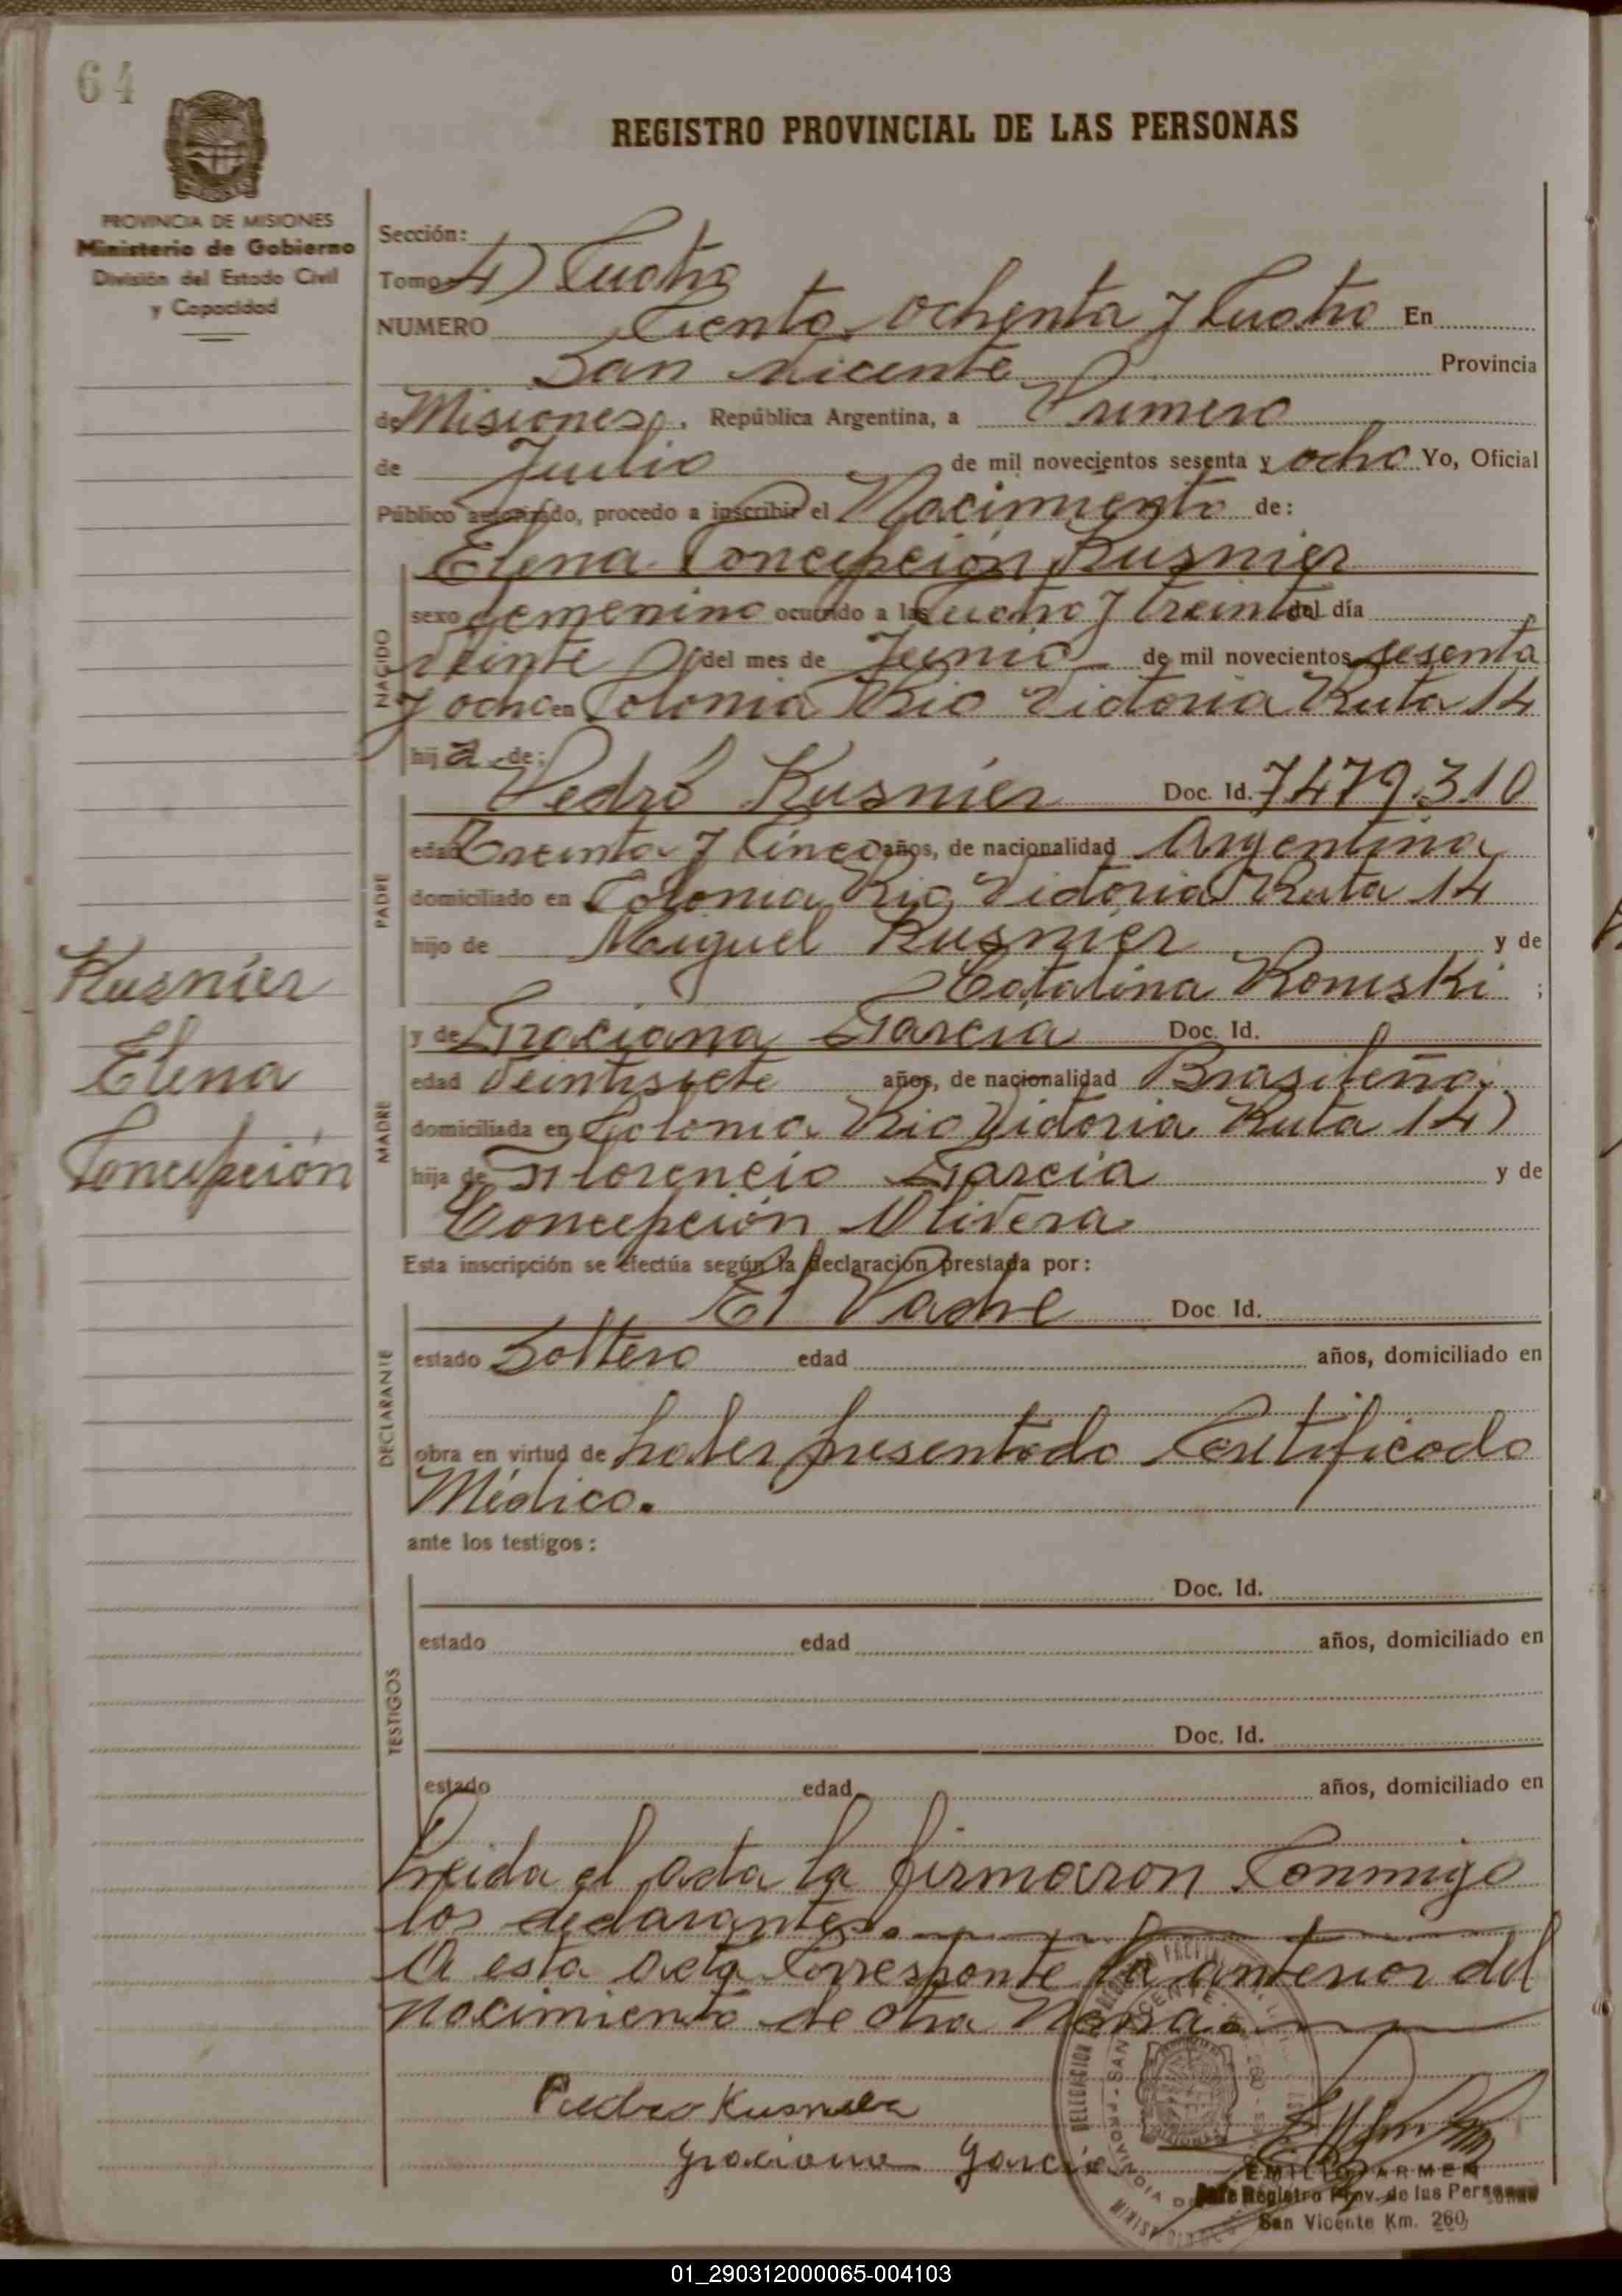 64
REGISTRO PROVINCIAL DE LAS PERSONAS
PROVINCIA DE MISIONES
Ministerio de Gobierno
División del Estado Civil
y Capacidad
Sección:
Tomo 4) Cuatro
NUMERO Ciento ochenta y Cuatro En
San Vicente Provincia
de Misiones, República Argentina, a Primero
de Julio de mil novecientos sesenta y ocho Yo, Oficial
Público autorizado, procedo a inscribir el Nacimiento de:
Elena Concepción Kusnier
sexo femenino ocurrido a las Cuatro y treinta del día
veinte del mes de Junio de mil novecientos sesenta
y ocho en Colonia Rio Victoria Ruta 14
hija de:
NACIDO
Pedro Kusnier Doc. Id. 7479.310
edad Treinta y Cinco años, de nacionalidad Argentina
domiciliado en Colonia Rio Victoria Ruta 14
hijo de Miguel Kusnier y de
Catalina Romiski ;
PADRE
Kusnier
Elena
Concepción
y de Graciana Garcia Doc. Id.
edad Veintisiete años, de nacionalidad Brasileña
domiciliada en Colonia Rio Victoria Ruta 14)
hija de Florencio Garcia y de
Concepción Olivera
MADRE
Esta inscripción se efectúa según la declaración prestada por:
El Padre Doc. Id.
estado Soltero edad años, domiciliado en
obra en virtud de haber presentado Certificado
Médico.
DECLARANTE
ante los testigos:
Doc. Id.
estado edad años, domiciliado en
Doc. Id.
estado edad años, domiciliado en
TESTIGOS
Leida el acta la firmaron Conmigo
los declarantes.
A esta acta Corresponte la anterior del
nacimiento de otra
Pedro
Graciana Garcia
EMILIO ARMEN
Jefe Registro Prov. de las Personas
San Vicente Km. 260
01_290312000065-004103